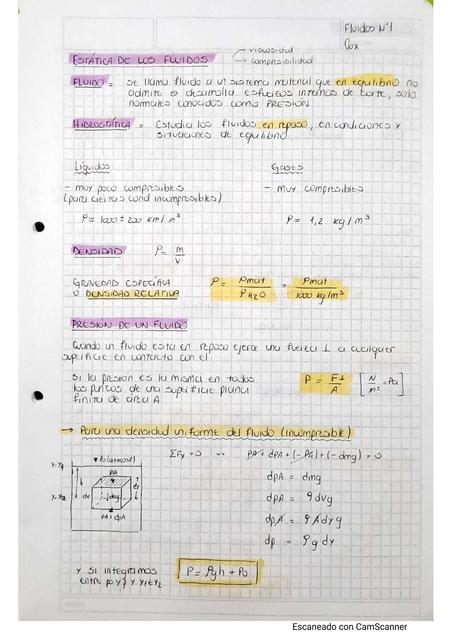 Fluidos N°1
Cox
ESTÁTICA DE LOS FLUIDOS
→ viscosidad
→ compresibilidad
FLUIDO = Se llama fluido a un sistema material que en equilibrio no
admite o desarrolla esfuerzos internos de corte, solo
normales conocidos como PRESIÓN
HIDROSTÁTICA = Estudia los fluidos en reposo, en condiciones y
situaciones de equilibrio.
Líquidos
- muy poco compresibles
(para ciertas cond incompresibles)
ρ = 1000 ± 200 km/m³
Gases
- muy compresibles
ρ = 1,2 kg/m³
DENSIDAD ρ = m/V
GRAVEDAD ESPECÍFICA
O DENSIDAD RELATIVA
ρ = ρmat/ρH2O = ρmat/1000 kg/m³
PRESIÓN DE UN FLUIDO
Cuando un fluido esta en reposo ejerce una fuerza ⊥ a cualquier
superficie en contacto con el
Si la presion es la misma en todos
los puntos de una superficie plana
finita de área A
P = F⊥/A [N/m² = Pa]
→ Para una densidad uniforme del fluido (incompresible)
ΣFy = 0
dpA = dmg
dpA = ρdvg
dpA = ρAdyg
dp = ρg dy
y si integramos
entre
P = ρgh + Po
Escaneado con CamScanner